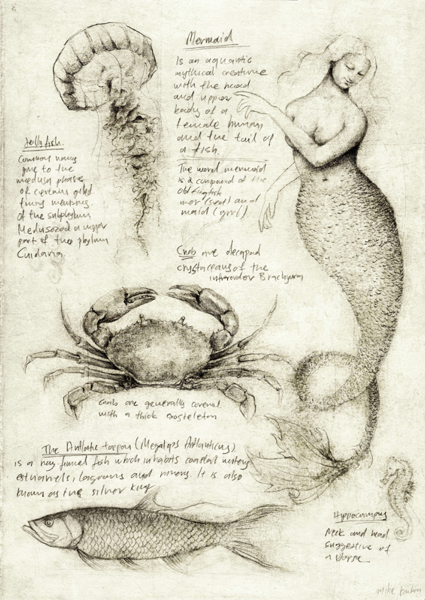 Mermaid
Is an aquatic
mythical creature
with the head
and upper
body of a
female human
and the tail of
a fish.
The word mermaid
is a compound of the
old english
mer (sea) and
maid (girl)
Jellyfish.
Common name
give to the
medusa phase
of certain gelat
living members
of the subphylum
Medusozoa a major
part of the phylum
Cnidaria
Crab are decapod
crustaceans of the
infraorder Brachyura
Crab are generally covered
with a thick exoskeleton
The Atlantic tarpon (Megalops Atlanticus)
is a ray finned fish which inhabits coastal waters
estuaries, lagoons and rivers. It is also
known as the silver king
Hippocampus
Neck and head
suggestive of
a horse